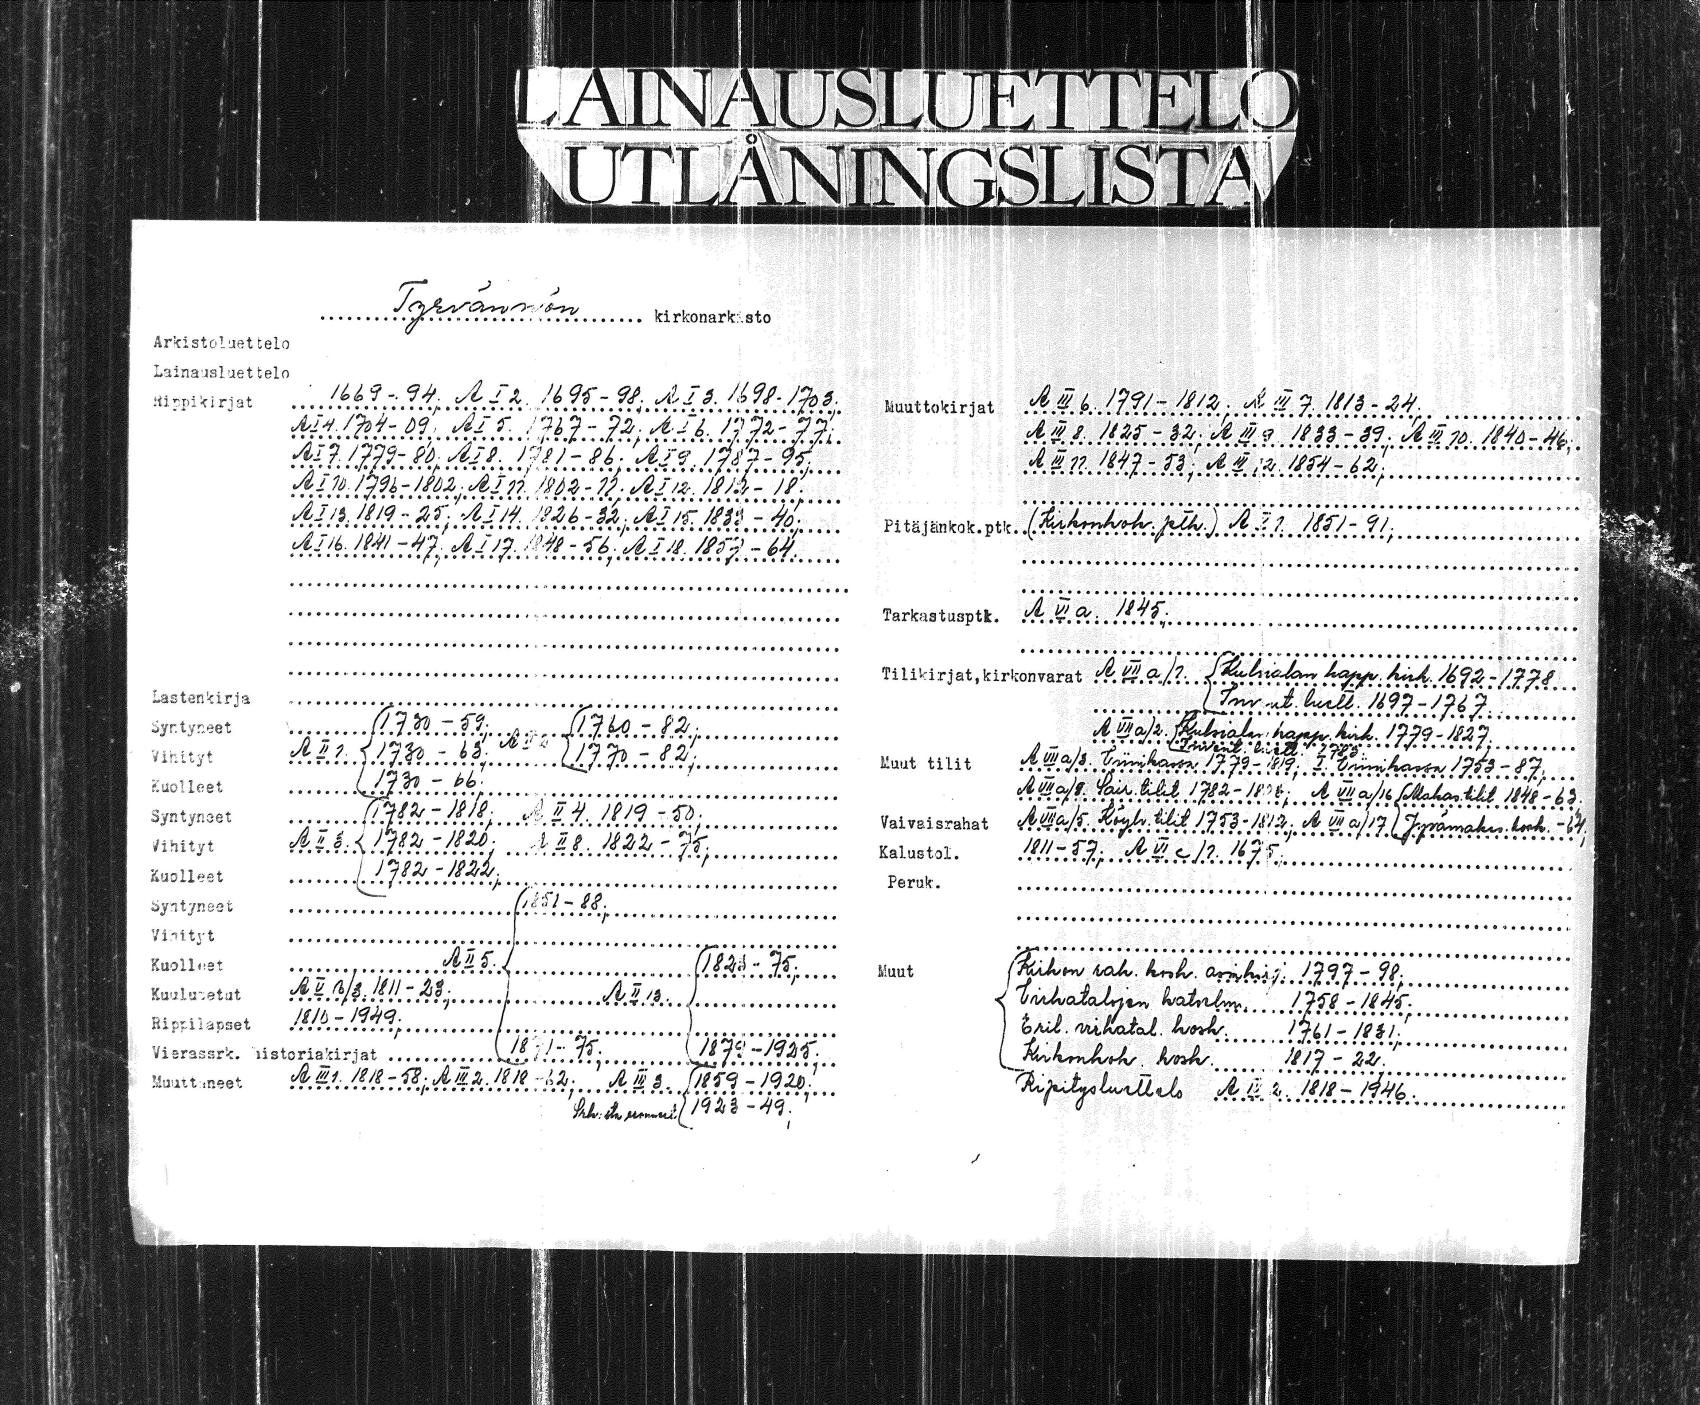 LAINAUSLUETTELO
UTLÅNINGSLISTA
Tyrvännön kirkonarkisto
Arkistoluettelo
Lainausluettelo
Rippikirjat 1669-94; A I 2. 1695-98; A I 3. 1698-1703;
A I 4. 1704-09; A I 5. 1767-72; A I 6. 1772-77;
A I 7. 1779-80; A I 8. 1781-86; A I 9. 1787-95;
A I 10. 1796-1802; A I 11. 1802-11; A I 12. 1812-18;
A I 13. 1819-25; A I 14. 1826-32; A I 15. 1833-40;
A I 16. 1841-47; A I 17. 1848-56; A I 18. 1857-64.
Lastenkirja
Syntyneet 1730-59; 1760-82;
Vihityt A II 1. 1730-63; A II 2 1770-82;
Kuolleet 1730-66;
Syntyneet 1782-1818; A II 4. 1819-50;
Vihityt A II 3. 1782-1820; A II 8. 1822-75;
Kuolleet 1782-1822;
Syntyneet 1851-88;
Vihityt
Kuolleet A II 5. 1823-75;
Kuulutetut 1811-23; A II 13.
Rippilapset 1810-1949;
Vierassrk. historiakirjat 1871-75; 1879-1925;
Muuttaneet A III 1. 1818-58; A III 2. 1818-62; A III 3. 1859-1920;
1923-49;
Muuttokirjat A III 6. 1791-1812; A III 7. 1813-24;
A III 8. 1825-32; A III 9 1833-39; A III 10. 1840-46;
A III 11. 1847-53; A III 12. 1854-62;
Pitäjänkok.ptk. (Kirkonkok. ptk.) A I 1. 1851-91;
Tarkastusptk. A VI a. 1845;
Tilikirjat,kirkonvarat A VII a/1. Kulsialan kapp. kirk. 1692-1778
Invent. luett. 1697-1767
A VII a/2. Kulsialan kapp. kirk. 1779-1827;
Invent. luett. 1783;
Muut tilit A VII a/3. 1779-1819; 1753-87;
A VII a/8. Sair. tilit 1782- A VII a/16 Makas. tilit 1848-63;
Vaivaisrahat A VII a/5. Köyh. tilit 1753-1812; A VII a/17 Jyvämakas. kosk. -64;
Kalustol. 1811-57; A VI c/1. 1675;
Peruk.
Muut Kirkon rah. kosk. 1797-98;
Virkatalojen katselm. 1758-1845;
Eril. virkatal. kosk. 1761-1831;
Kirkonkok. kosk. 1817-22;
Ripitysluettelo A IV 2. 1818-1946.